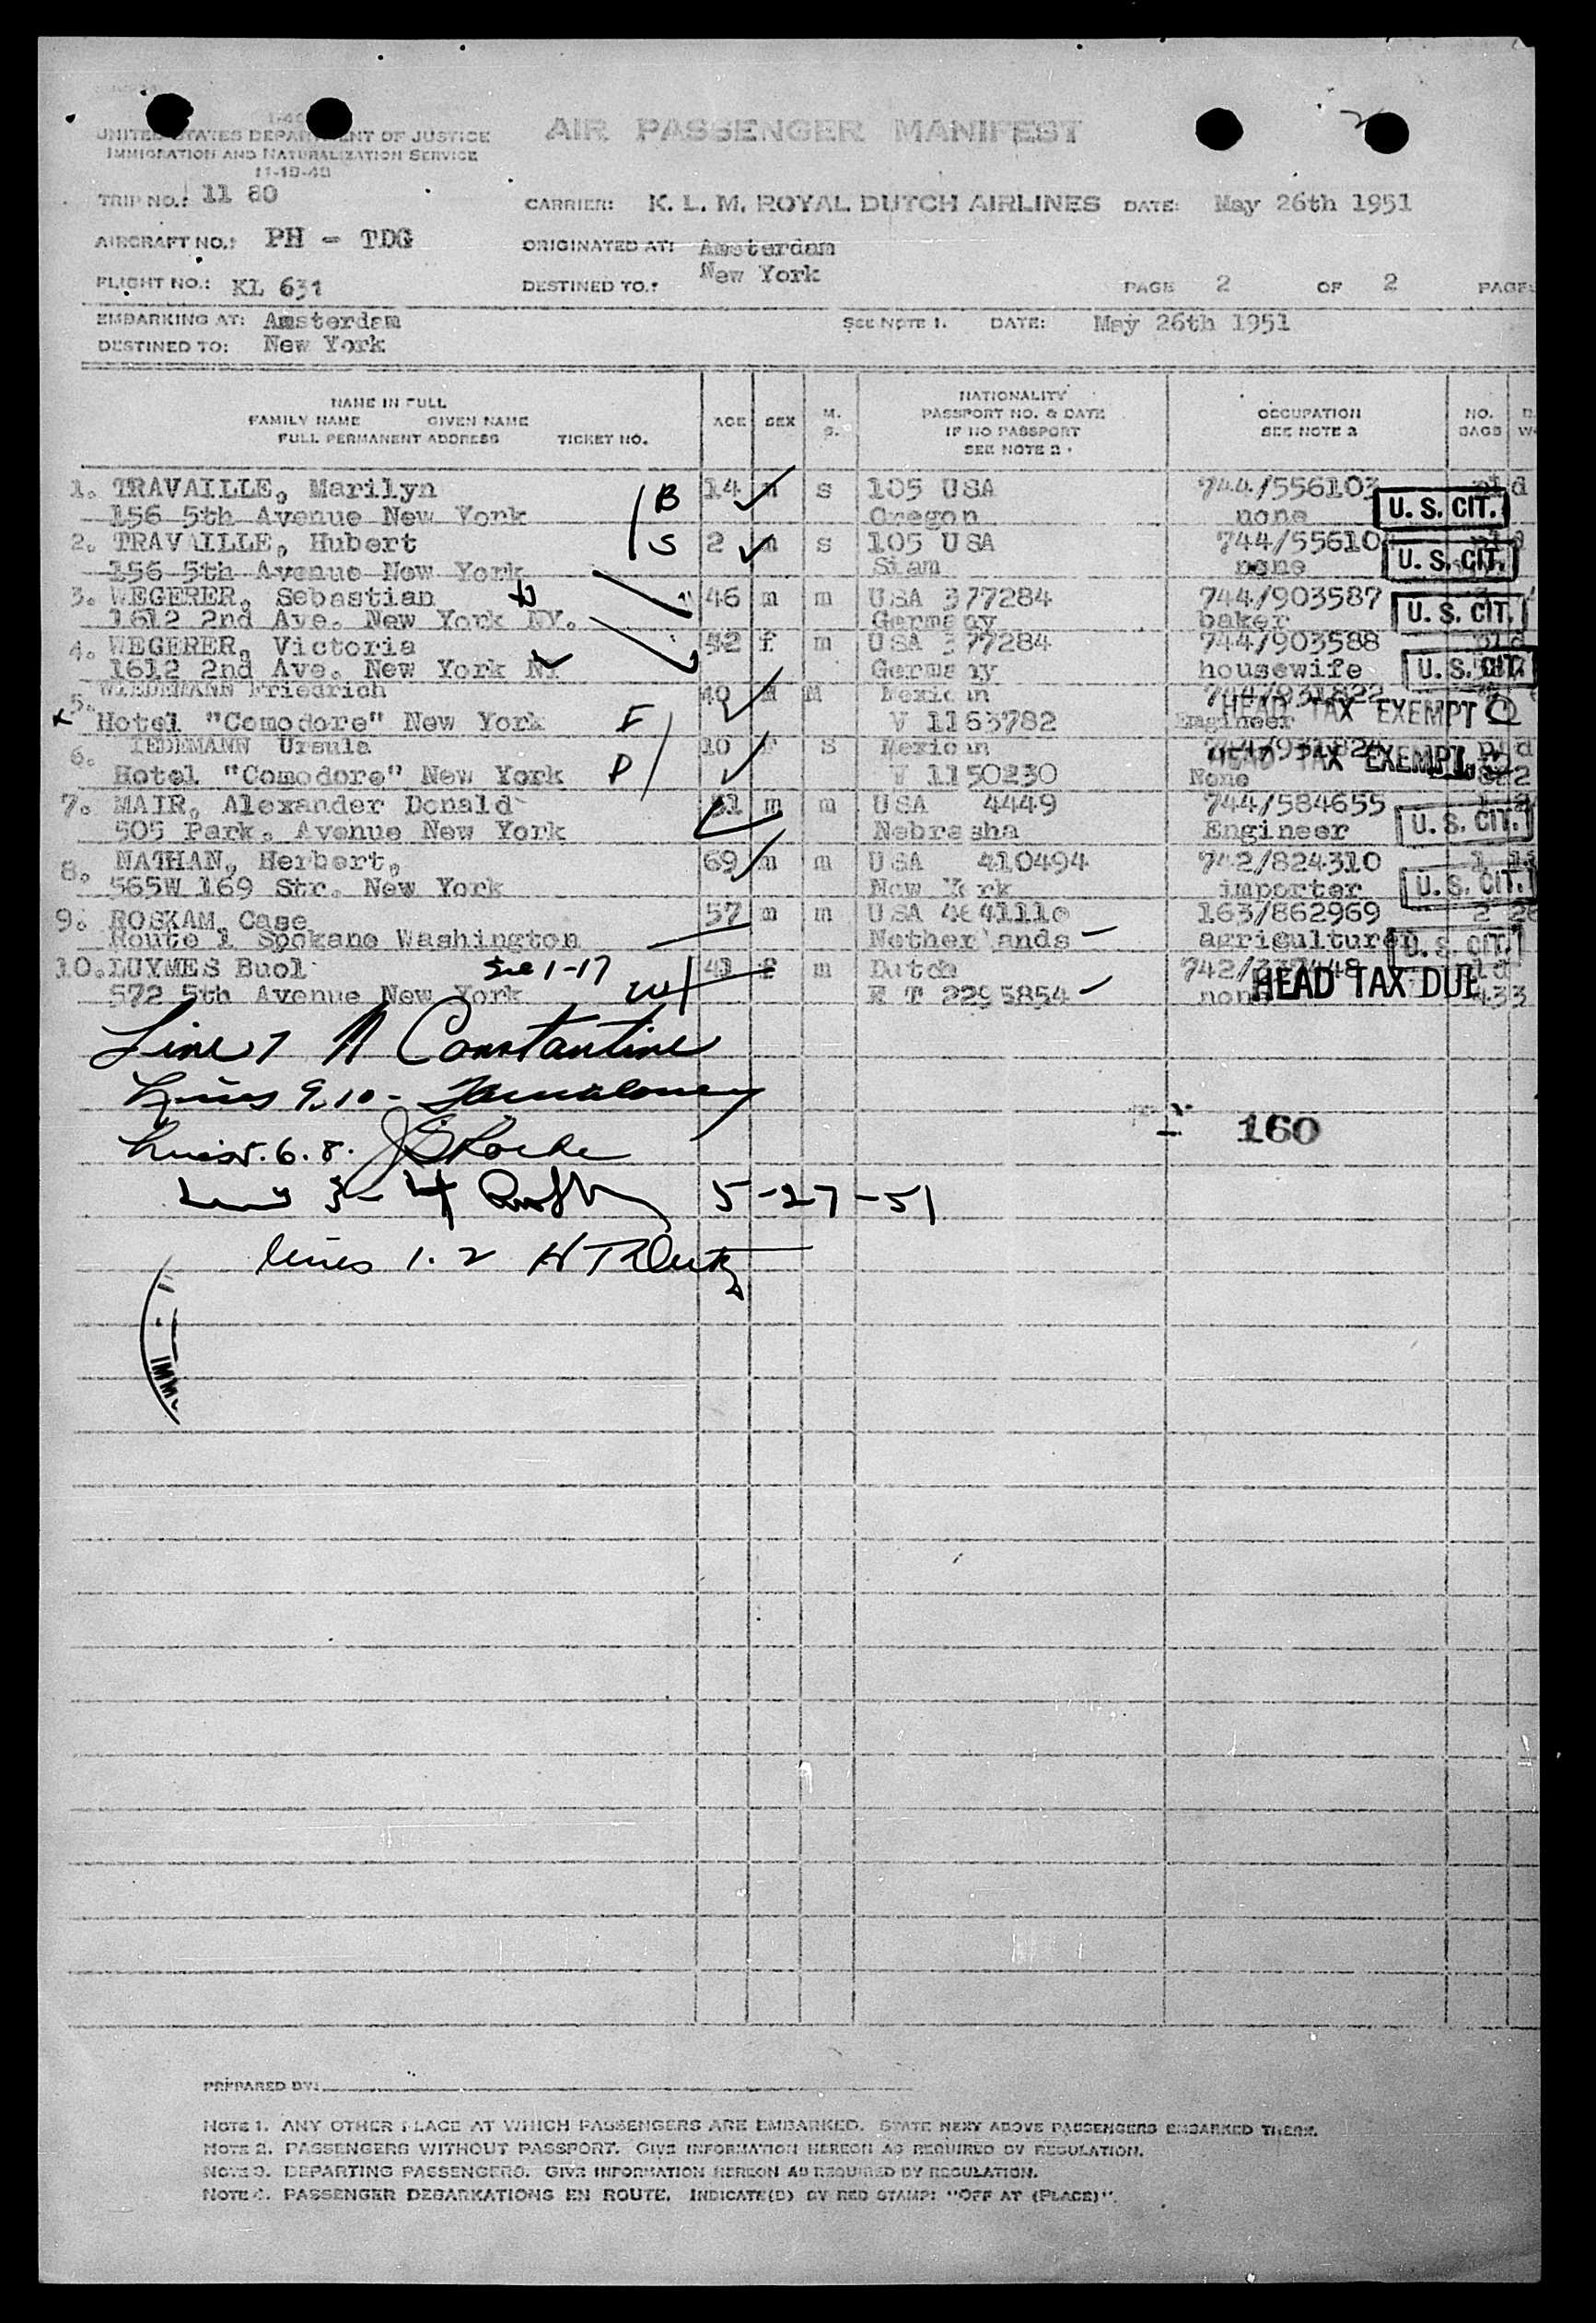 I-466
UNITED STATES DEPARTMENT OF JUSTICE
IMMIGRATION AND NATURALIZATION SERVICE
11-19-48
AIR PASSENGER MANIFEST
TRIP NO.: 11 80 CARRIER: K. L. M. ROYAL DUTCH AIRLINES DATE: May 26th 1951
AIRCRAFT NO.: PH - TDG ORIGINATED AT: Amsterdam
FLIGHT NO.: KL 631 DESTINED TO.: New York PAGE 2 OF 2 PAGES
EMBARKING AT: Amsterdam SEE NOTE 1. DATE: May 26th 1951
DESTINED TO: New York
NAME IN FULL
FAMILY NAME GIVEN NAME
FULL PERMANENT ADDRESS TICKET NO.
AGE SEX M. S.
NATIONALITY
PASSPORT NO. & DATE
IF NO PASSPORT
SEE NOTE 2.
OCCUPATION
SEE NOTE 2
NO. BAGS
1. TRAVAILLE, Marilyn B 14 m s 105 USA 744/556103 pld
156 5th Avenue New York Oregon none U. S. CIT.
2. TRAVAILLE, Hubert S 2 m s 105 USA 744/55610
156 5th Avenue New York Siam none U. S. CIT.
3. WEGERER, Sebastian 46 m m USA 377284 744/903587
1612 2nd Ave. New York NY. Germany baker U. S. CIT.
4. WEGERER, Victoria 52 f m USA 377284 744/903588 pld
1612 2nd Ave. New York NY Germany housewife U. S. CIT.
5. WIEDEMANN Friedrich 40 M M Mexican 744/931822
x Hotel "Comodore" New York F V 1163782 Engineer HEAD TAX EXEMPT
6. IEDEMANN Ursula 10 F S Mexican pld
Hotel "Comodore" New York P V 1150230 None HEAD TAX EXEMPT
7. MAIR, Alexander Donald 51 m m USA 4449 744/584655
505 Park. Avenue New York Nebrasha Engineer U. S. CIT.
8. NATHAN, Herbert, 69 m m USA 410494 742/824310
565W 169 Str. New York New York importer U. S. CIT.
9. ROSKAM, Case 57 m m USA 163/862969
Route 1 Spokane Washington Netherlands agriculturer U. S. CIT.
10. LUYMES Buol See 1-17 41 f m Dutch pld
572 5th Avenue New York W K T 2295854 none HEAD TAX DUE 433
Line 7 A Constantine
Lines 9, 10 -
Lines 5. 6. 8.
160
Lines 3-4 5-27-51
lines 1. 2
IMM.
PREPARED BY:
NOTE 1. ANY OTHER PLACE AT WHICH PASSENGERS ARE EMBARKED. STATE NEXT ABOVE PASSENGERS EMBARKED THERE.
NOTE 2. PASSENGERS WITHOUT PASSPORT. GIVE INFORMATION HEREON AS REQUIRED BY REGULATION.
NOTE 3. DEPARTING PASSENGERS. GIVE INFORMATION HEREON AS REQUIRED BY REGULATION.
NOTE 4. PASSENGER DEBARKATIONS EN ROUTE. INDICATE(D) BY RED STAMP: "OFF AT (PLACE)".